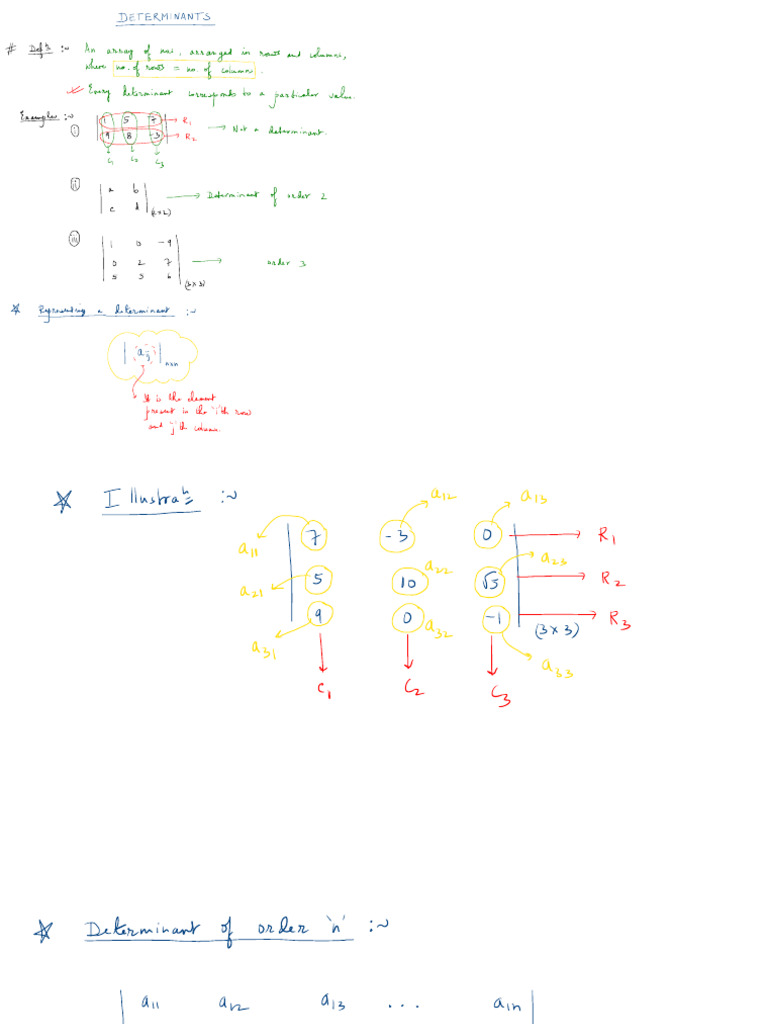 DETERMINANTS
# Defn :~ An array of nos. arranged in rows and columns,
where no. of rows = no. of column.
Every determinant corresponds to a particular value.
Examples :~
(i) | 1 5 -7 | → R1 → Not a determinant.
| 9 8 -3 | → R2
C1 C2 C3
(ii) | a b | → Determinant of order 2
| c d | (2×2)
(iii) | 1 0 -9 |
| 0 2 7 | → order 3
| 5 5 6 | (3×3)
* Representing a determinant :~
| aij | n×n
It is the element
present in the 'i'th row
and 'j'th column
* Illustratn :~
a12 a13
| 7 -3 0 | → R1
a11 a22 a23
| 5 10 √5 | → R2
a21
| 9 0 -1 | → R3
a31 a32 (3×3)
a33
C1 C2 C3
* Determinant of order 'n' :~
| a11 a12 a13 ... a1n |